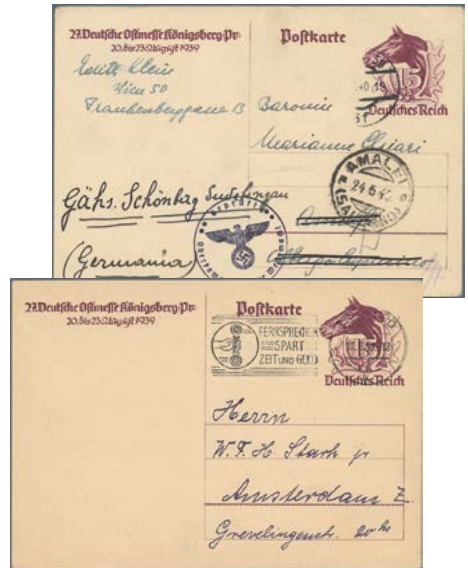 27. Deutsche Ostmesse Königsberg Pr.
20. bis 23. August 1939
Postkarte
15
Deutsches Reich
Edith Klein
Wien 50
Baronin
Marianne Chiari
AMALFI
24.6.4
Gähs. Schönbag Sudetengau
(Germania)
27. Deutsche Ostmesse Königsberg Pr.
20. bis 23. August 1939
Postkarte
FERNSPRECHEN
SPART
ZEIT UND GELD
Deutsches Reich
Herrn
W. F. H. Stark jr
Amsterdam Z.